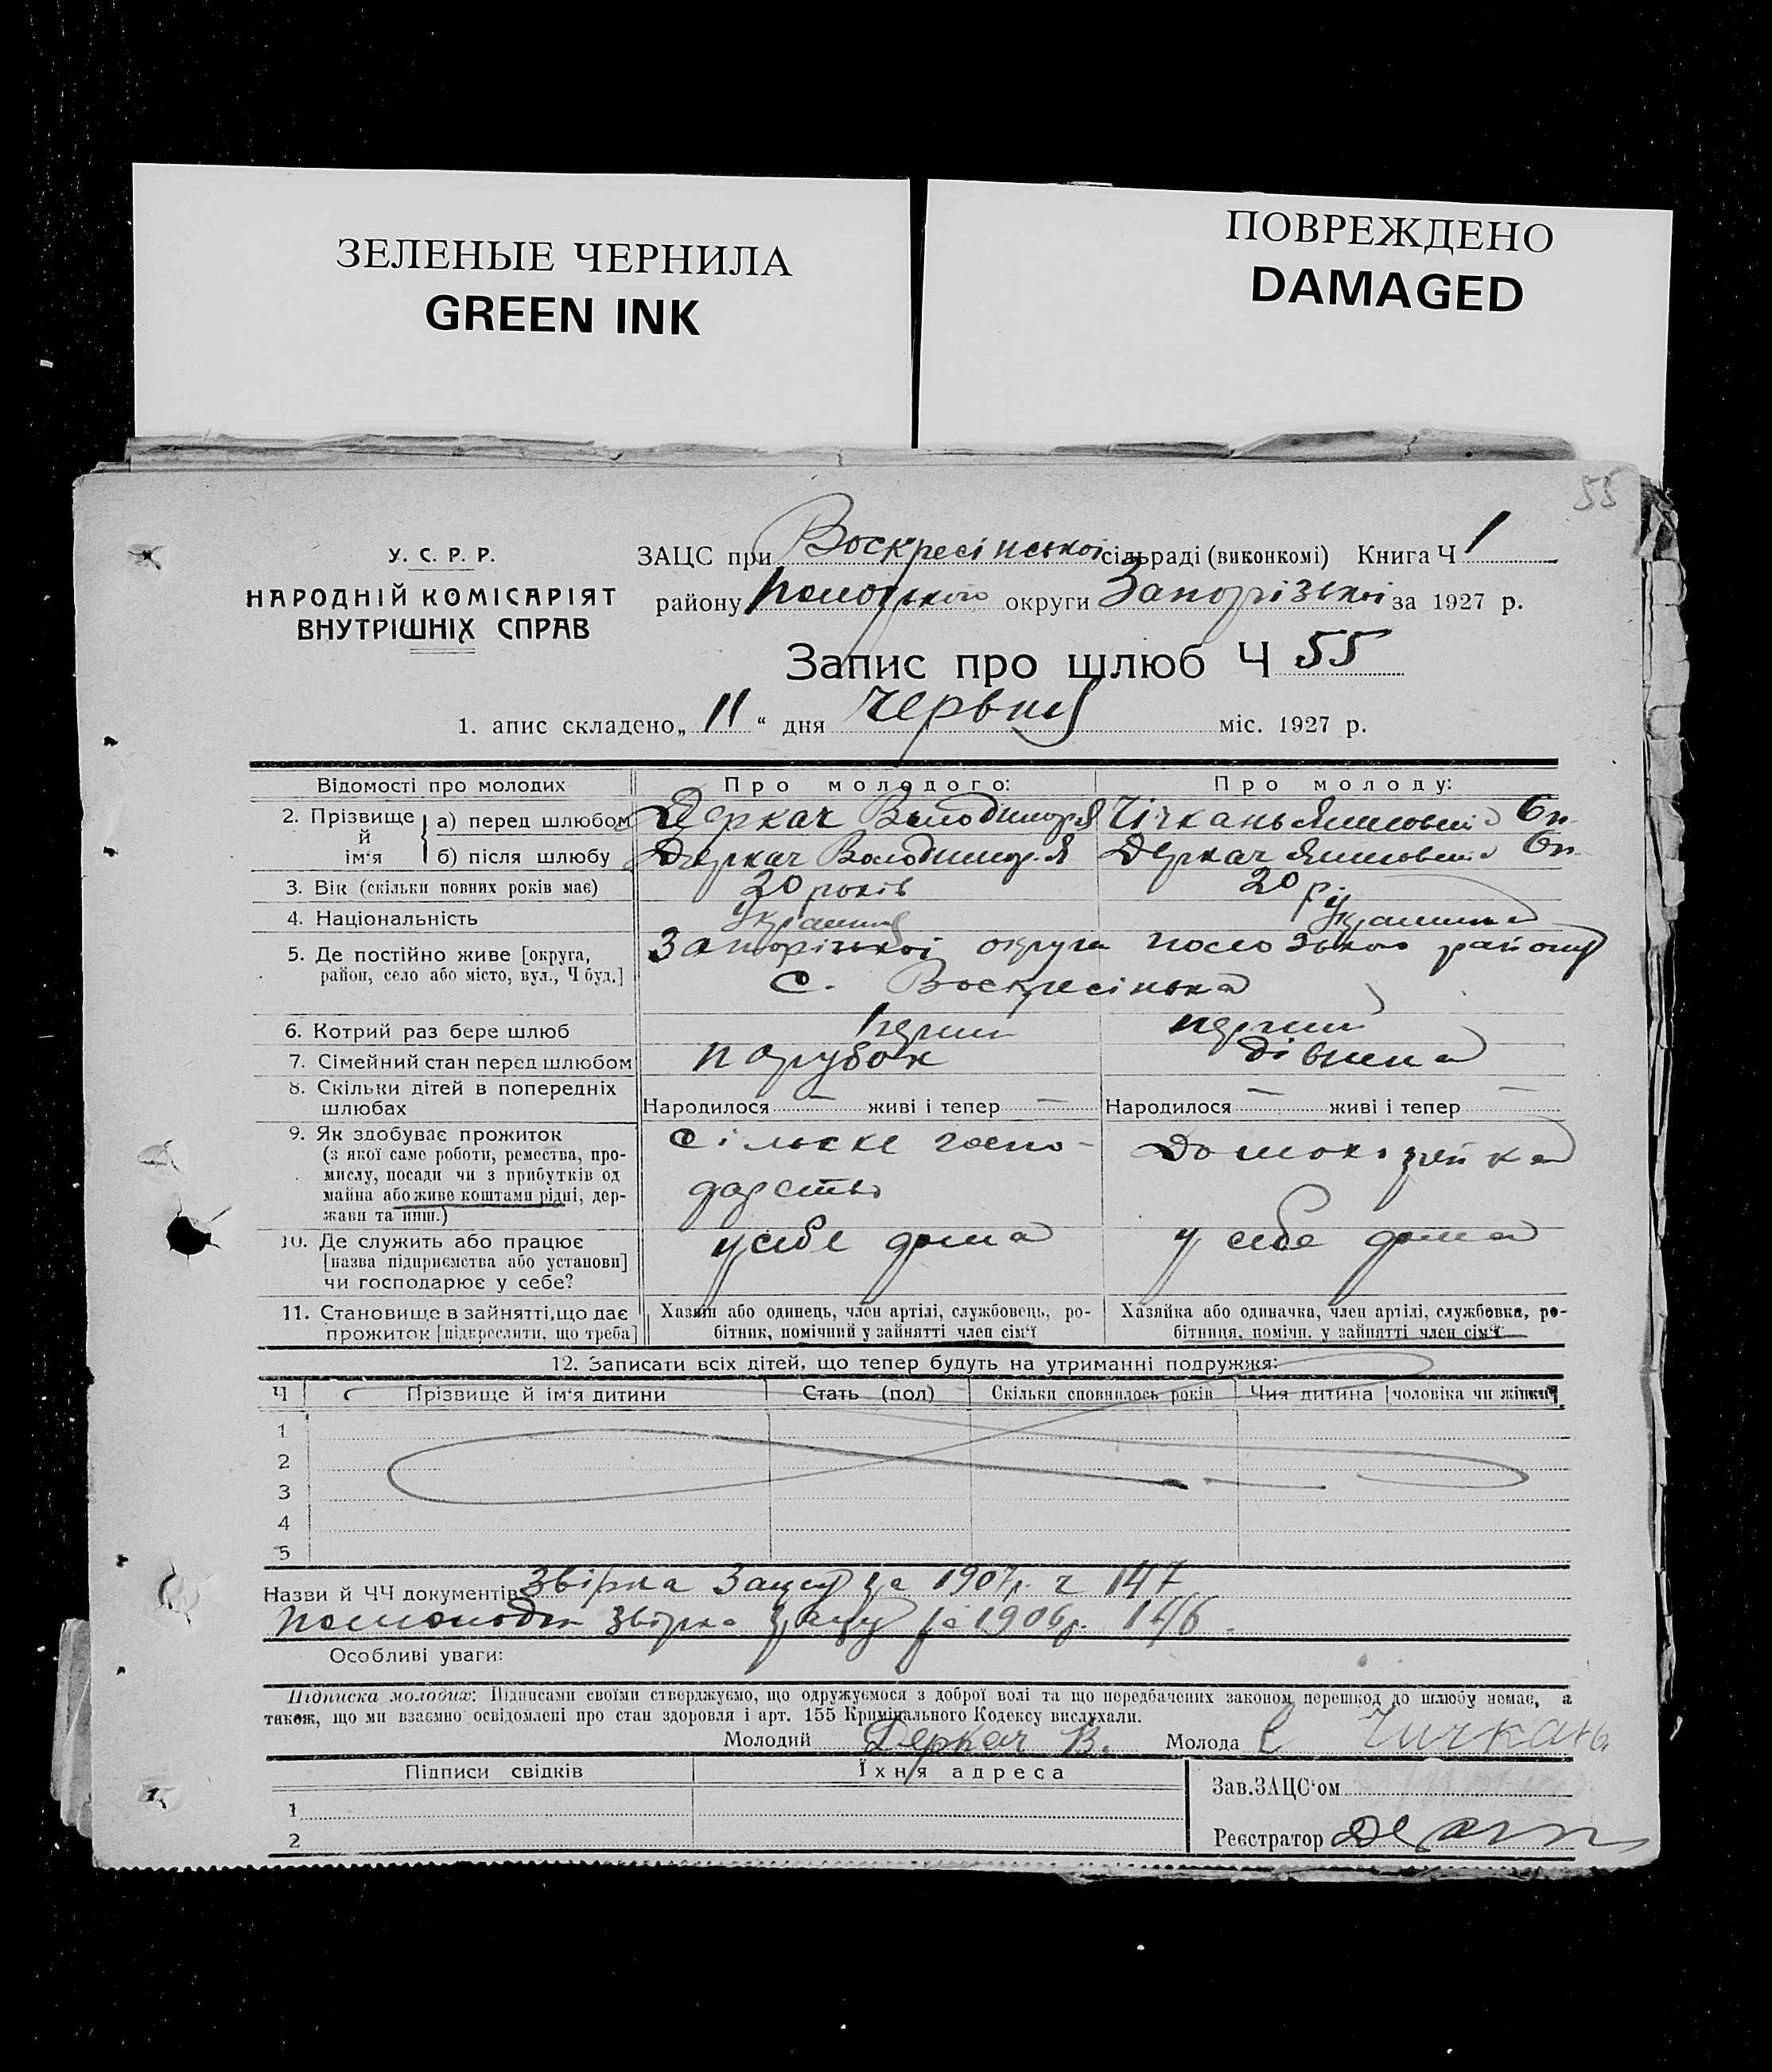 ЗЕЛЕНЫЕ ЧЕРНИЛА
GREEN INK
ПОВРЕЖДЕНО
DAMAGED
55
У. С. Р. Р.
НАРОДНІЙ КОМІСАРІЯТ
ВНУТРІШНІХ СПРАВ
ЗАЦС при Воскресінської сільраді (виконкомі) Книга Ч 1
району округи Запорізької за 1927 р.
Запис про шлюб Ч 55
1. апис складено „ 11 “ дня червня міс. 1927 р.
Відомості про молодих Про молодого: Про молоду:
2. Прізвище й ім‘я
а) перед шлюбом Деркач Володимир Я Чічкань
б) після шлюбу Деркач Володимир Я Деркач
3. Вік (скільки повних років має) 20 років 20 р
4. Національність
5. Де постійно живе [округа, район, село або місто, вул., Ч буд.] Запорізької округи району
с. Воскресінка
6. Котрий раз бере шлюб перший перший
7. Сімейний стан перед шлюбом парубок дівчина
8. Скільки дітей в попередніх шлюбах
Народилося — живі і тепер — Народилося — живі і тепер —
9. Як здобуває прожиток
(з якої саме роботи, ремества, про-
мислу, посади чи з прибутків од
майна або живе коштами рідні, дер-
жави та инш.)
Сільске госпо-
дарство
Домохозяйка
10. Де служить або працює
[назва підприємства або установи]
чи господарює у себе?
у себе дома у себе дома
11. Становище в зайнятті, що дає
прожиток [підкреслити, що треба]
Хазяїн або одинець, член артілі, службовець, ро-
бітник, помічний у зайнятті член сім‘ї
Хазяйка або одиначка, член артілі, службовка, ро-
бітниця, помічн. у зайнятті член сім‘ї
12. Записати всіх дітей, що тепер будуть на утриманні подружжя:
Ч Прізвище й ім‘я дитини Стать (пол) Скільки сповнилось років Чия дитина [чоловіка чи жінки]
1
2
3
4
5
Назви й ЧЧ документів Звірка Зацсу за 1907 р. ч 147
звірка зацсу за 1906 р. 146.
Особливі уваги:
Підписка молодих: Підписами своїми стверджуємо, що одружуємося з доброї волі та що передбачених законом перешкод до шлюбу немає, а
також, що ми взаємно освідомлені про стан здоровля і арт. 155 Кримінального Кодексу вислухали.
Молодий Деркач В. Молода Чичкань
Підписи свідків Їхня адреса
1
2
Зав.ЗАЦС‘ом
Реєстратор